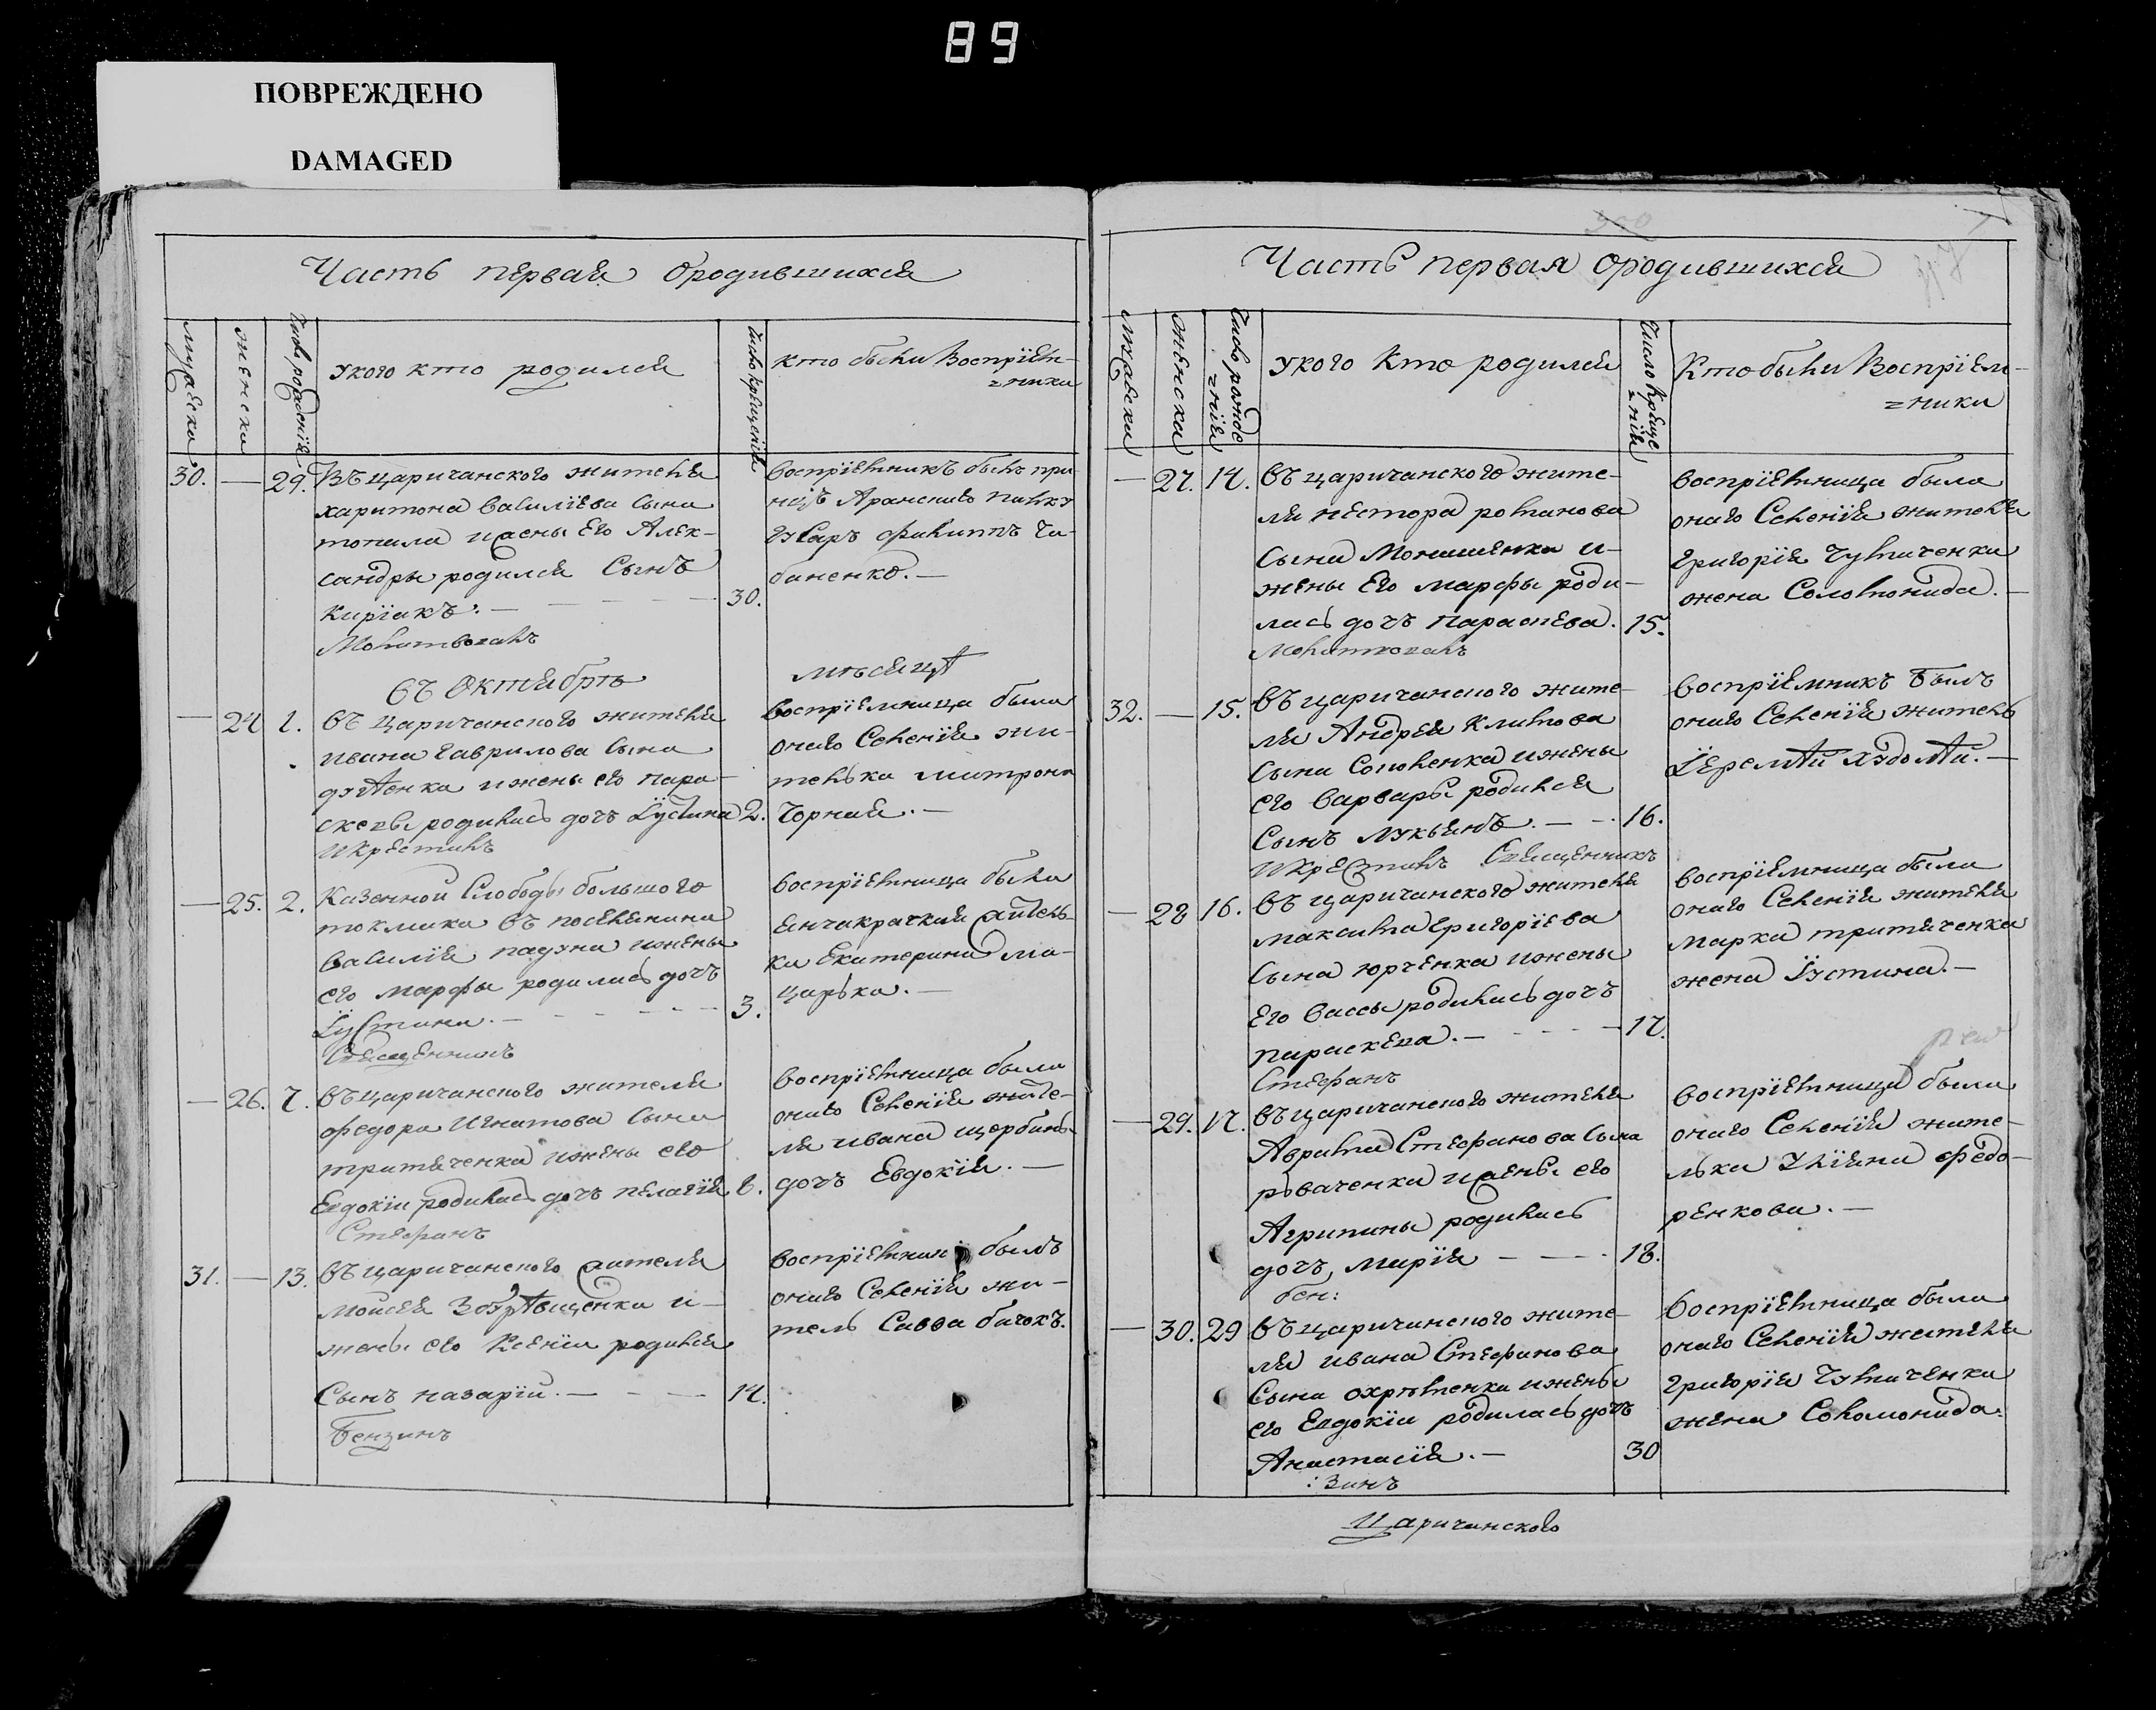 89
ПОВРЕЖДЕНО
DAMAGED
Часть первая ородившихся
мужеска
женска
Число рождения
укого кто родился
Число крещения
кто были Воспріем-
=ники
30. — 29. Въ царичанского жителя
харитона василіева сына
топала ижены Его Алек-
сандры родился Сынъ
киріакъ. — 30.
Молитвовалъ
воспріемникъ былъ
гусаръ филиппъ ча-
баненко. —
въ Октябрѣ
мѣсяцѣ
— 24 1. въ царичанского жителя
ивана гаврилова сына
ижены его пара-
скевы родилась дочь Іустина 2.
икрестилъ
воспріемница была
онаго Селенія жи-
телька матрона
Чорная. —
— 25. 2. Казенной Слободы большого
токмака въ поселянина
василія ижены
его марфы родилась дочь
Іустина. — 3.
Священникъ
воспріемница была
Екатерина ма-
царька. —
— 26. 7. въ царичанского жителя
федора Игнатова сына
тритяченка ижены его
Евдокіи родилась дочь пелагія 8.
Стефанъ
воспріемница была
онаго Селенія жите-
ля ивана щербины
дочь Евдокія. —
31. — 13. въ царичанского жителя
моисея и-
жены его Ксеніи родился
Сынъ назарій. — 14.
Бензинъ
воспріемникъ былъ
онаго Селенія жи-
тель Савва бачокъ.
Часть первая ородившихся
мужеска
женска
Число рожде
=нія
укого кто родился
Число креще
=нія
Кто были Воспріем-
=ники
— 27. 14. въ царичанского жите-
ля нестора романова
сына Монашенка и-
жены Его марфы роди-
лась дочь параскева. 15.
Молитвовалъ
воспріемница была
онаго Селенія жителя
григорія Чумаченка
жена Соломонида. —
32. — 15. въ царичанского жите-
ля Андрея Климова
сына Соловенка ижены
его варвары родился
Сынъ лукьянъ. — 16.
икрестилъ Священникъ
воспріемникъ былъ
онаго Селенія житель
Іеремѣй худолѣй. —
— 28 16. въ царичанского жителя
максима григоріева
сына юрченка ижены
Его вассы родилась дочь
параскева. — 17.
Стефанъ
воспріемница была
онаго Селенія жителя
марка тритяченка
жена Іустина. —
— 29. 17. въ царичанского жителя
Аврама Стефанова Сына
ижены его
Агрипины родилась
дочь, марія — 18.
бен:
воспріемница была
онаго Селенія жите-
лька Уліяна федо-
ренкова. —
— 30. 29 въ царичанского жите-
ля ивана Стефанова
Сына охрѣменка ижены
его Евдокіи родилась дочь
Анастасія. — 30
:зинъ
воспріемница была
онаго Селенія жителя
григорія Чумаченка
жена Соломонида.
Царичанского